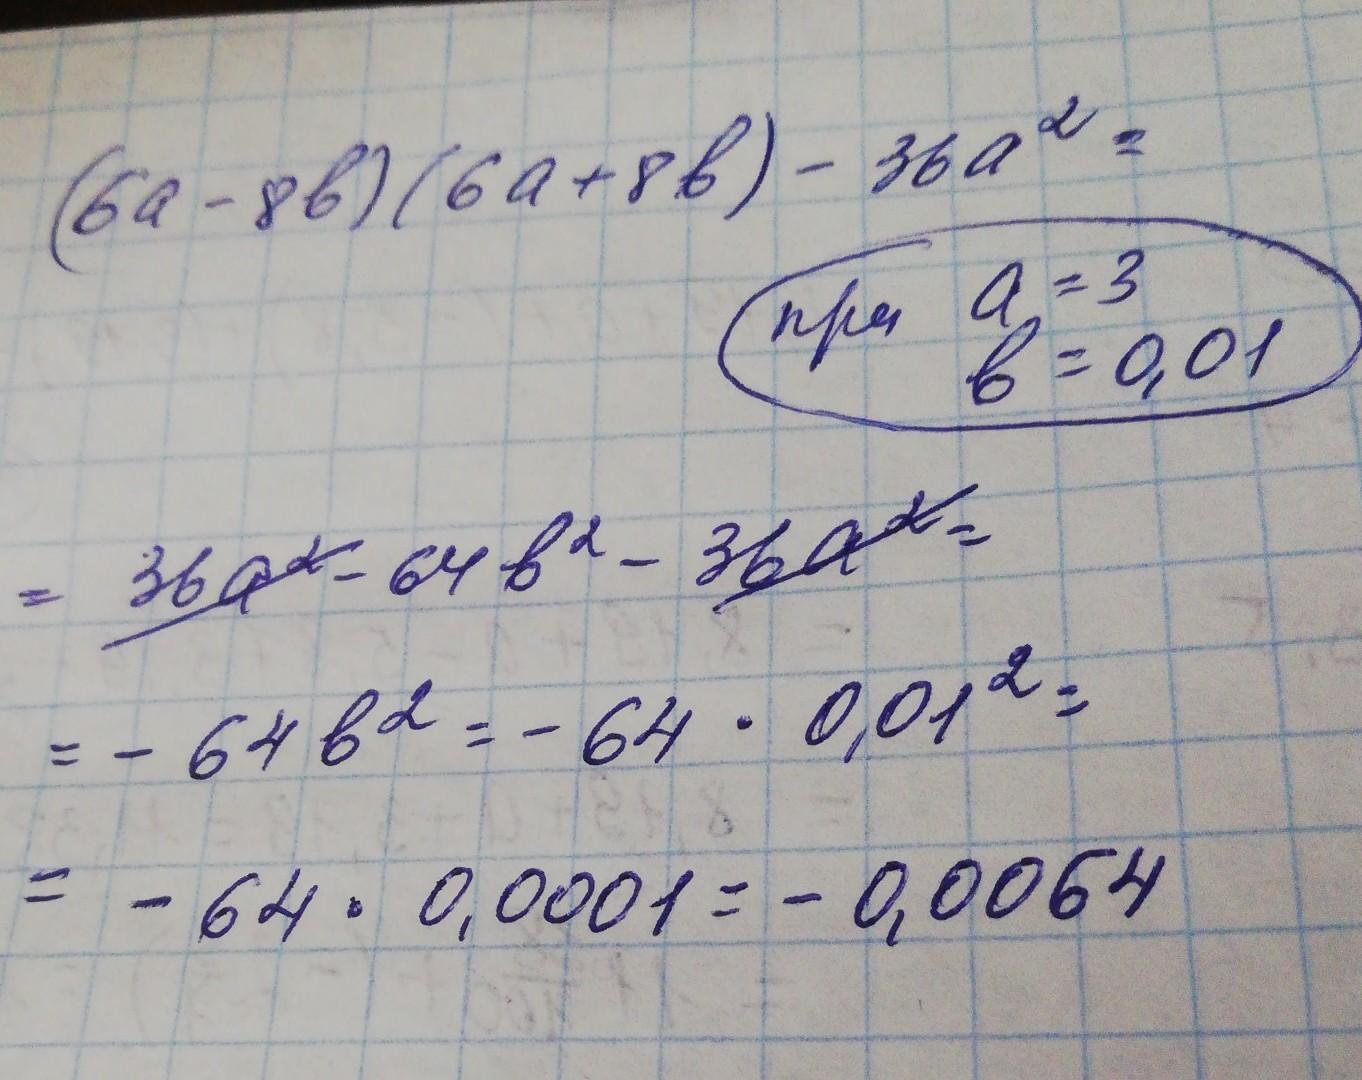 (6a - 8b)(6a + 8b) - 36a² =
при a = 3
b = 0,01
= 36a² - 64b² - 36a² =
= - 64b² = - 64 · 0,01² =
= - 64 · 0,0001 = - 0,0064